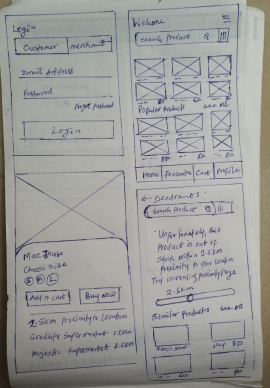 Login
Customer merchant
Email Address
Password
Forgot password
Login
Welcome
Search Product
Popular Products See All
Home Favourite Cart Profile
Choose Size
S M L
Add to cart Buy Now
2.5km Proximity to Location
Supermarket 2.0km
← Deodrants
Search Product
Unfortunately, this
Product is out of
Stock within 2.5km
Proximity to your location
Try increasing Proximity range
2.5km
Similar products See All